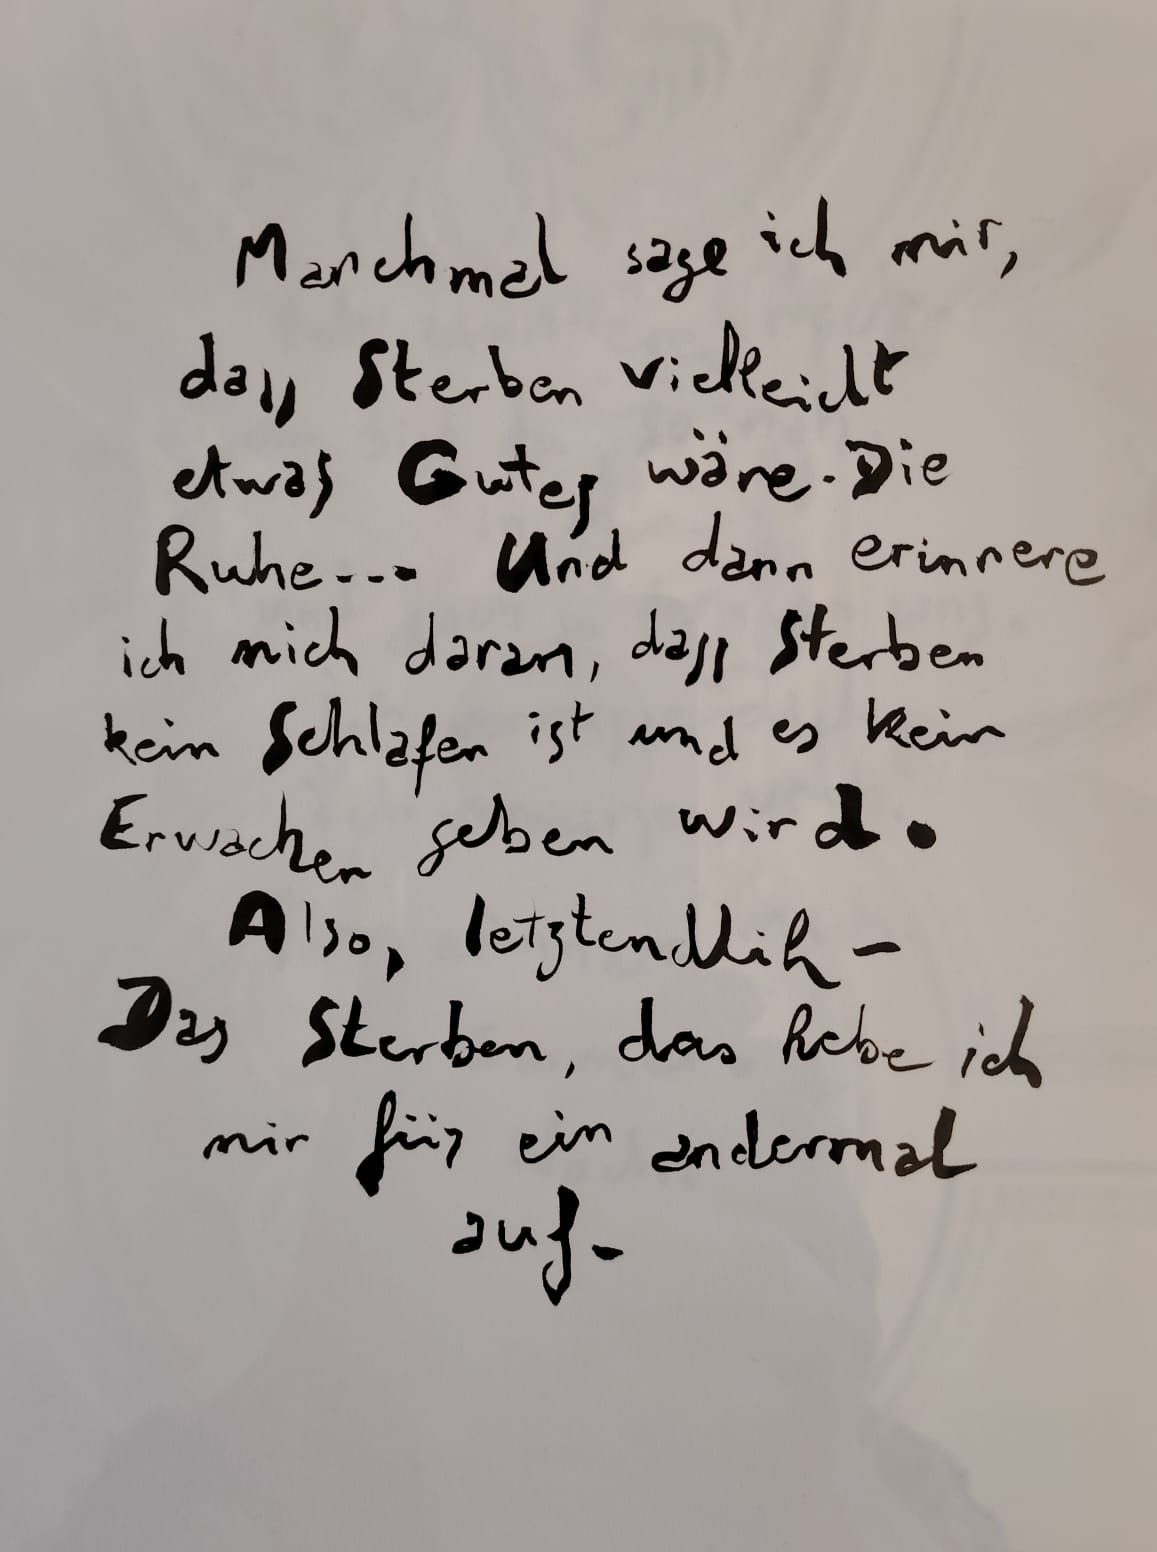 Manchmal sage ich mir,
dass Sterben vielleicht
etwas Gutes wäre. Die
Ruhe... Und dann erinnere
ich mich daran, dass Sterben
kein Schlafen ist und es kein
Erwachen geben wird.
Also, letztendlich -
Das Sterben, das hebe ich
mir für ein andermal
auf.